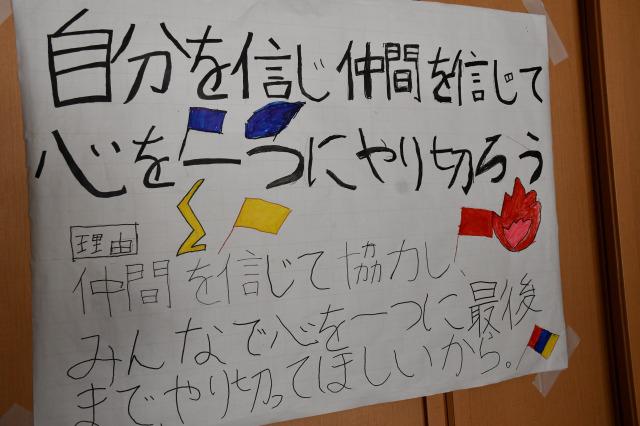 自分を信じ仲間を信じて
心を一つにやり切ろう
理由
仲間を信じて協力し、
みんなで心を一つに最後
まで、やり切ってほしいから。